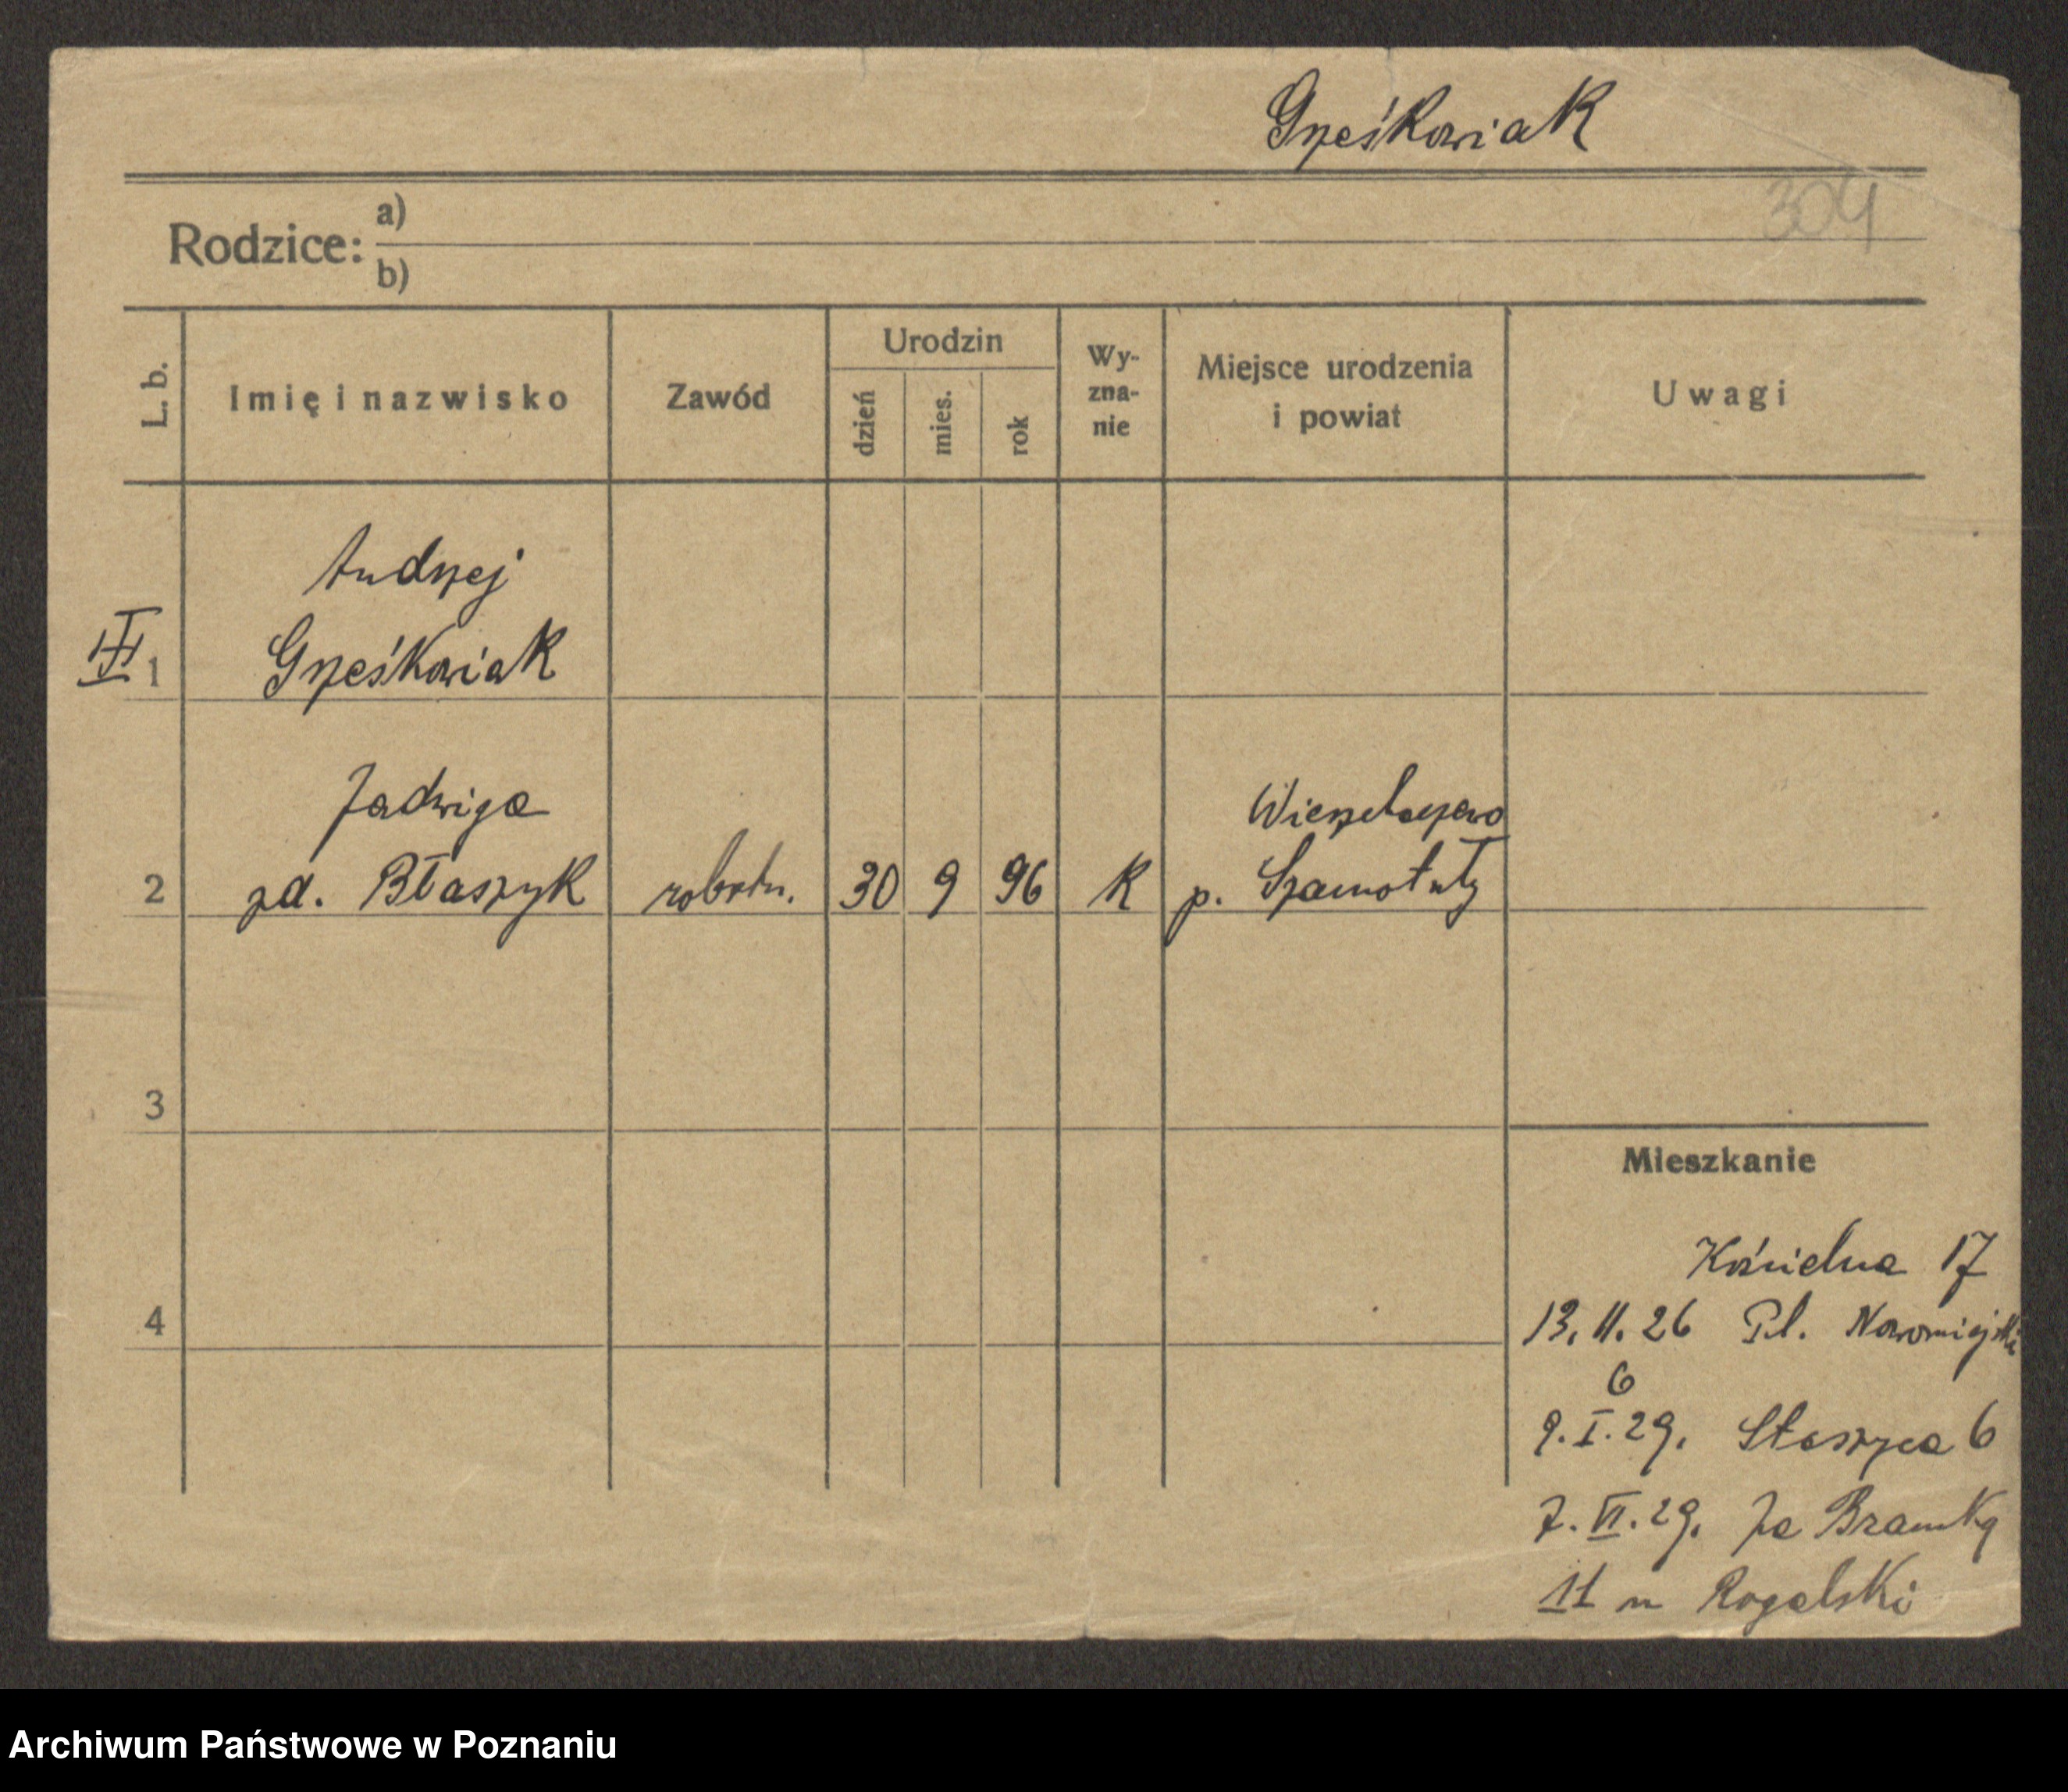 Grześkowiak
304
Rodzice: a)
b)
L. b. Imię i nazwisko Zawód Urodzin dzień mies. rok Wy-zna-nie Miejsce urodzenia i powiat Uwagi
Andrzej
1 Grześkowiak
Jadwiga Wierzchaczewo
2 zd. Błaszyk robotn. 30 9 96 K p. Szamotuły
3
Mieszkanie
Kościelna 17
4 13. 11. 26 Pl. Nowomiejski
6
9. I. 29. Staszyca 6
7. VI. 29. Za Bramką
11 m Rogalski
Archiwum Państwowe w Poznaniu